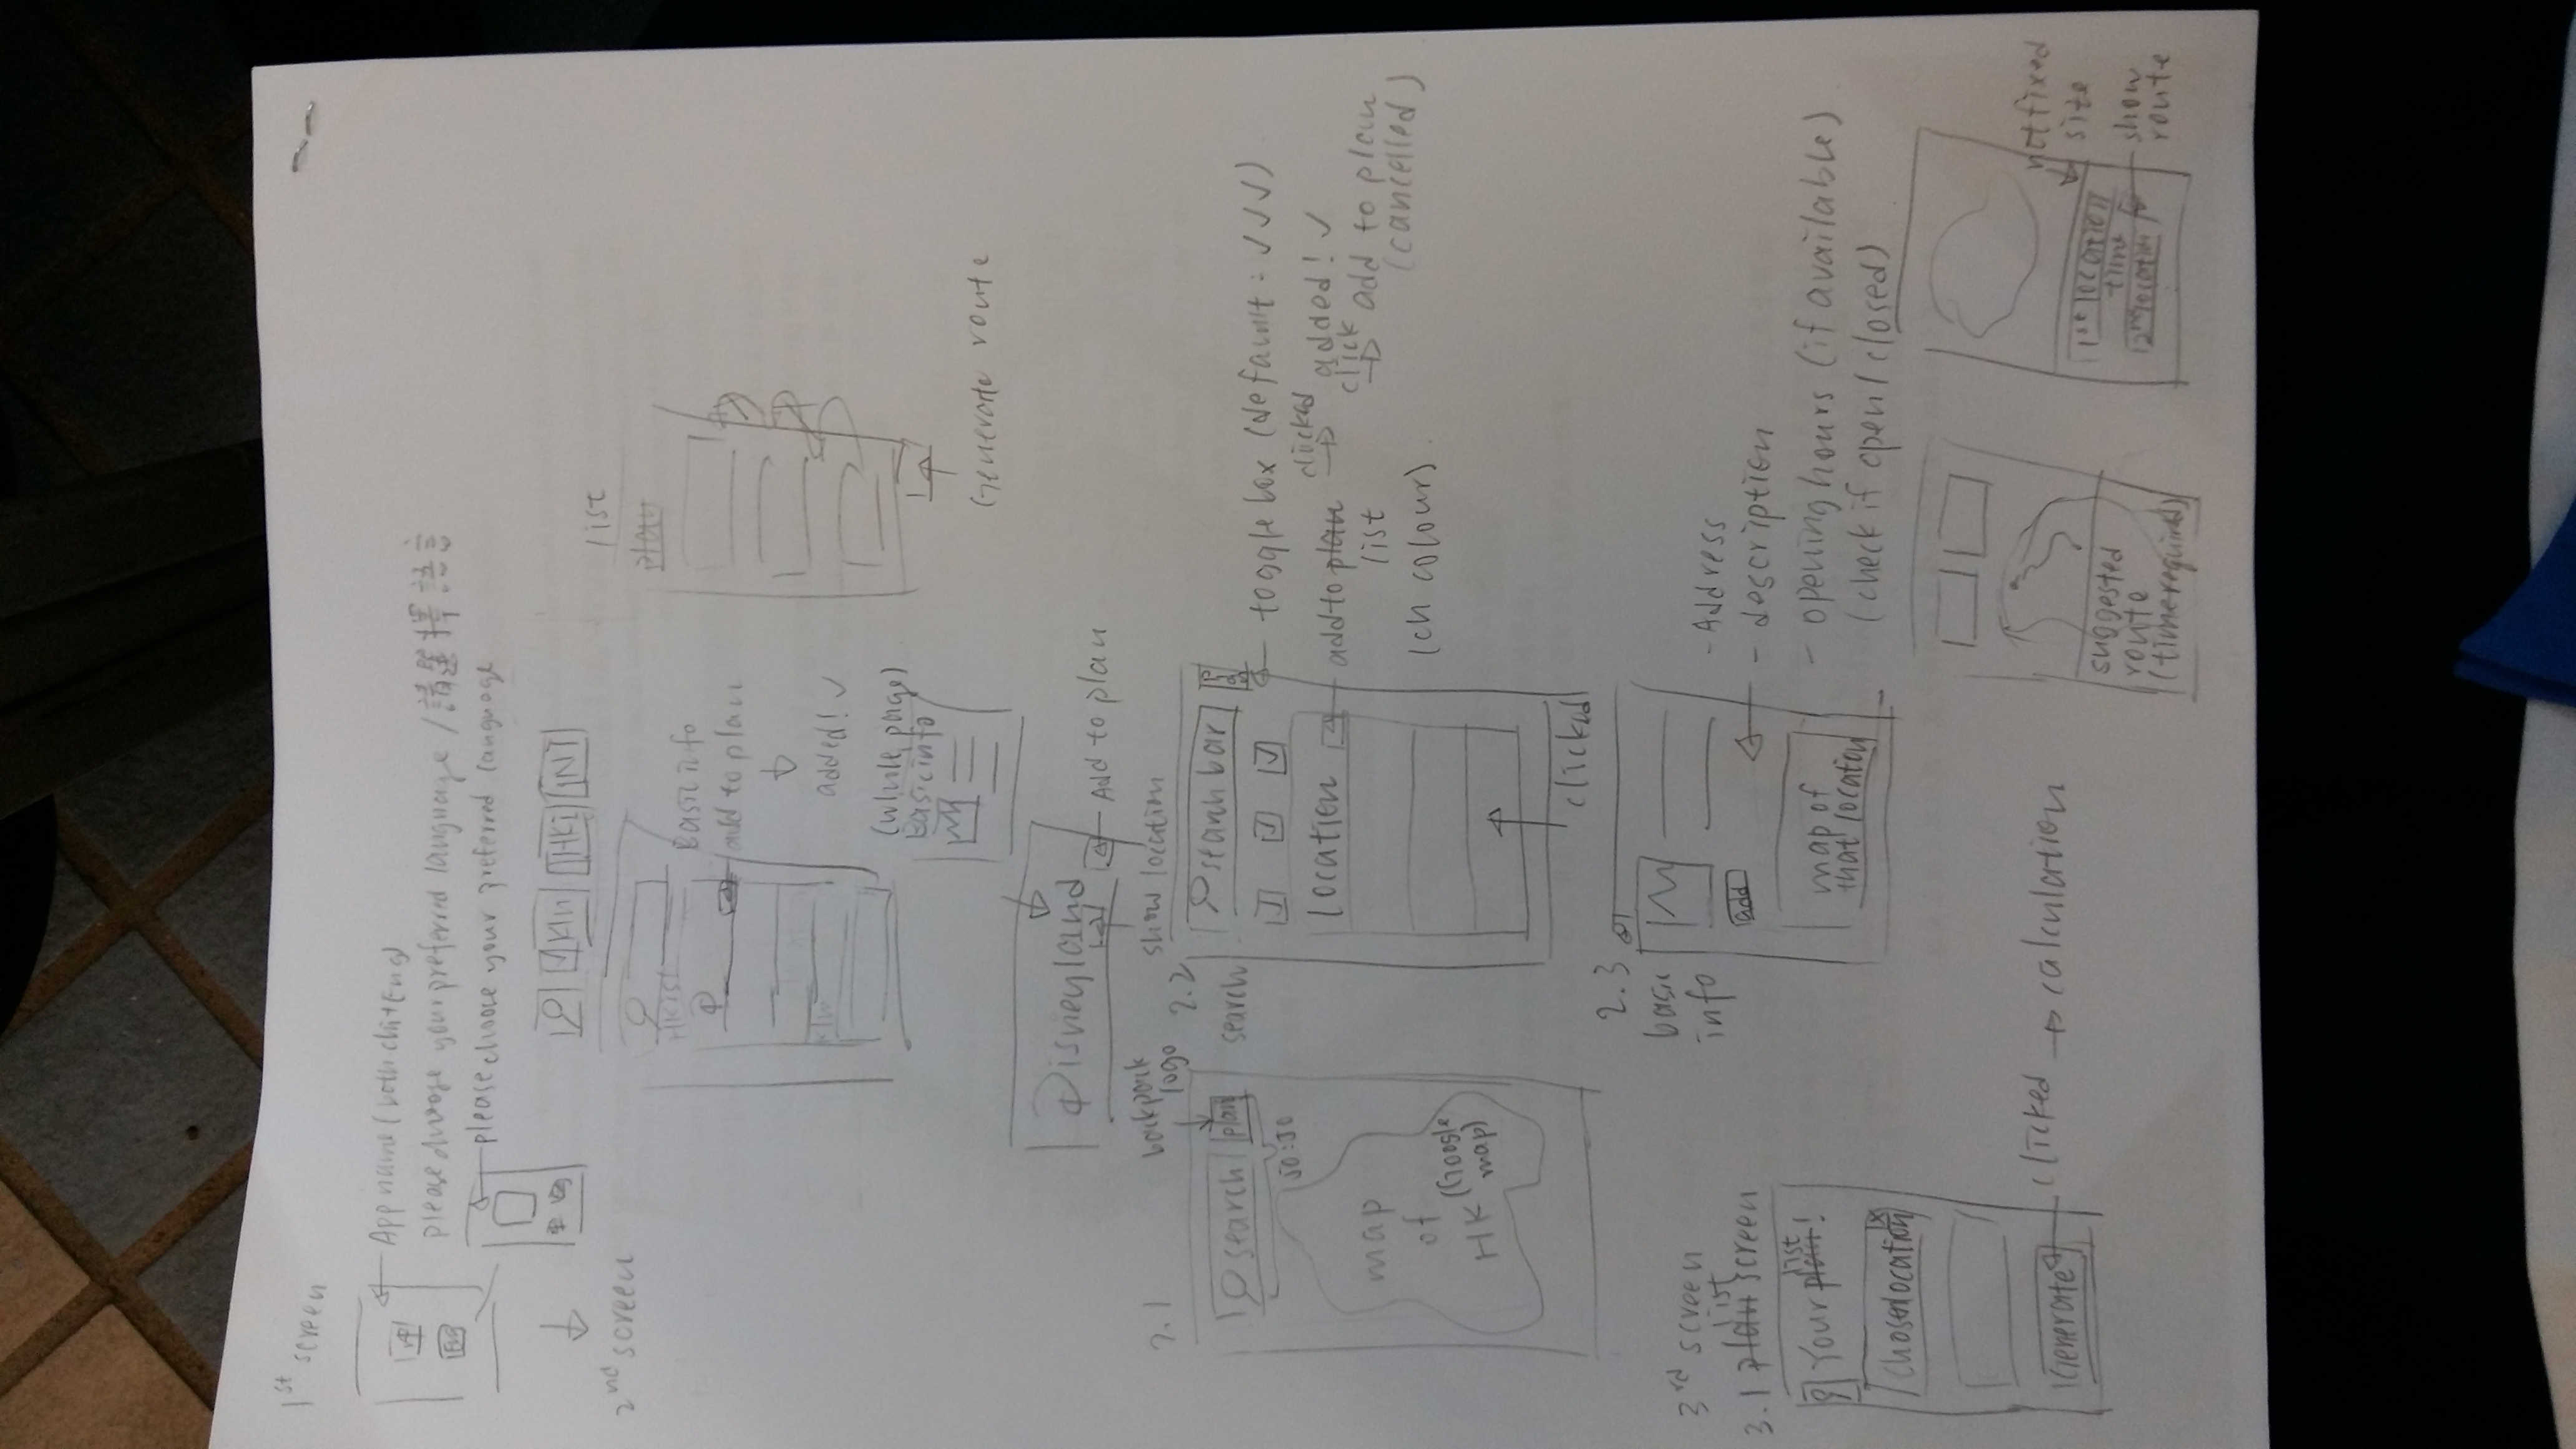 1st screen
App name (both chi+Eng)
please choose your preferred language / 請選擇語言
中
Eng
please choose your preferred language
2nd screen
Kln
HKI
NT
list
plan
HK Isl
Basic info
add to plan
added! ✓
(whole page)
Basic info
Generate route
Disneyland
Add to plan
show location
2.1
backpack
logo
search
plan
50:50
map
of
HK (Google
map)
2.2
search
search bar
toggle box (default: ✓✓✓)
location
add to plan
list
clicked
added! ✓
click
add to plan
(cancelled)
(ch colour)
clicked
2.3
basic
info
add
map of
that location
- Address
- description
- opening hours (if available)
(check if open/closed)
3rd screen
list
3.1 plan screen
list
Your plan!
Chosen location
x
Generate
clicked → calculation
suggested
route
(time required)
not fixed
size
1st location
time
2nd location
show
route